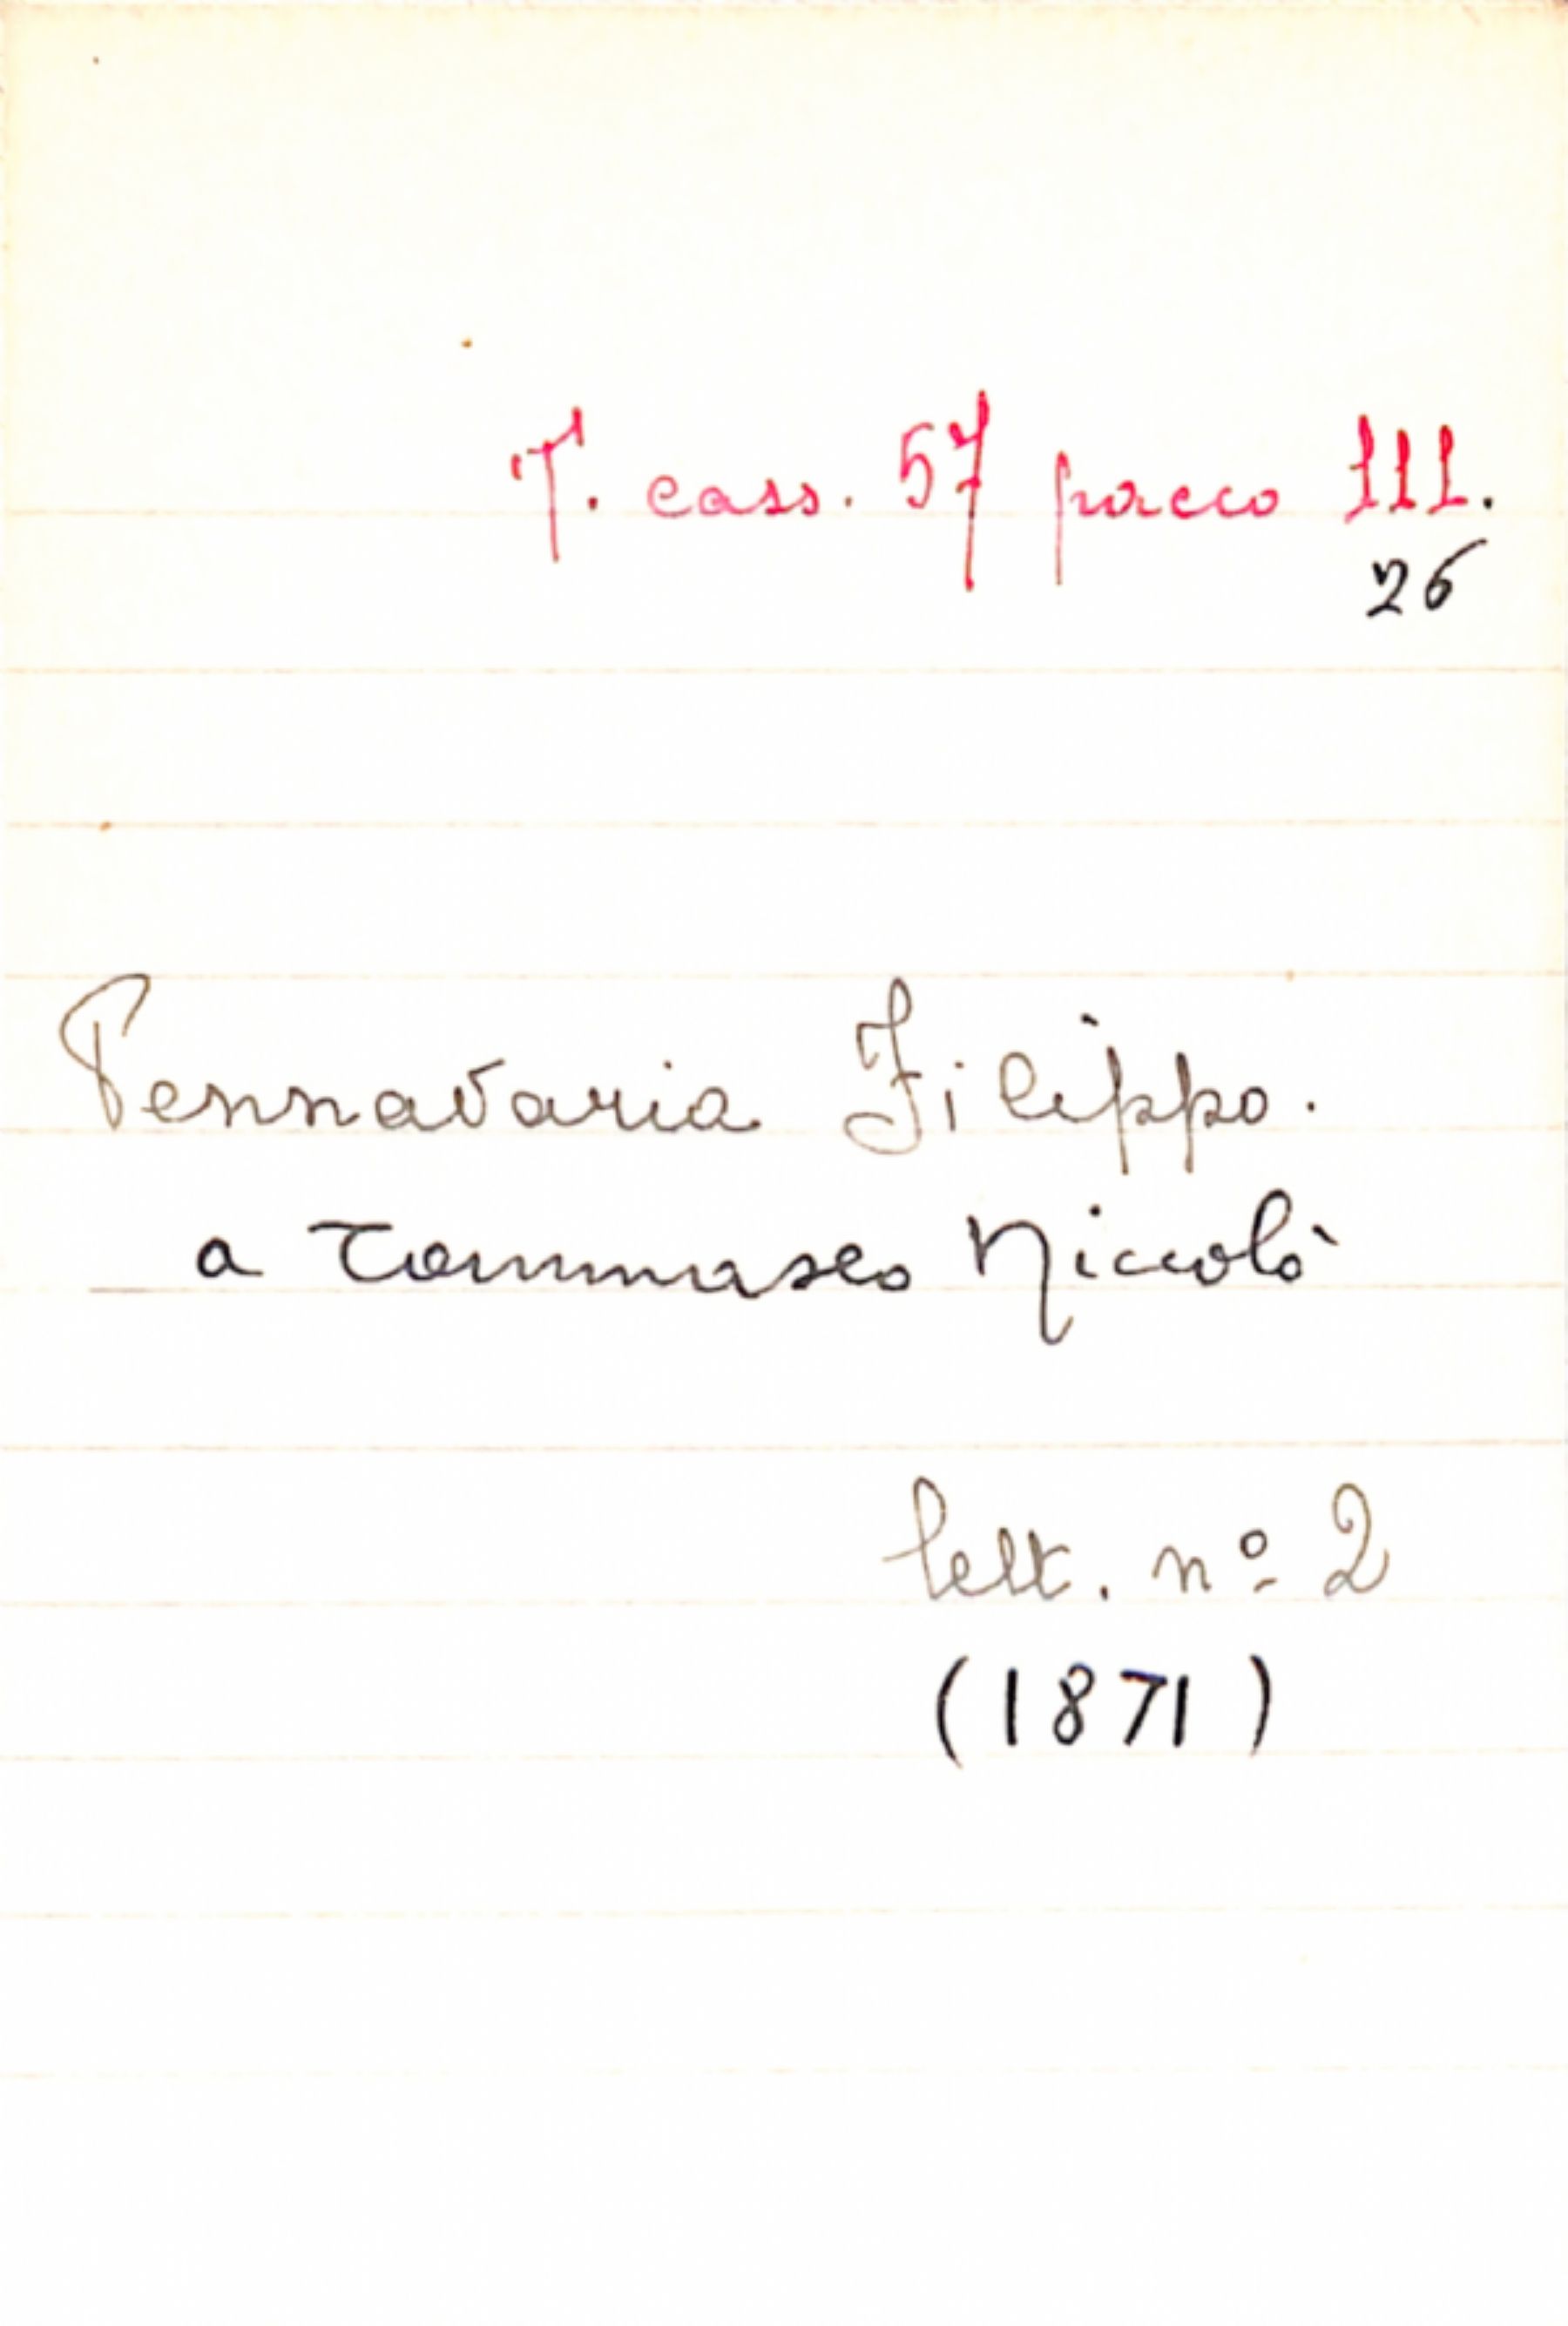 T. cass. 57 pacco III.
26
Pennavaria Filippo.
a Tommaseo Niccolò
lett. nº 2
(1871)